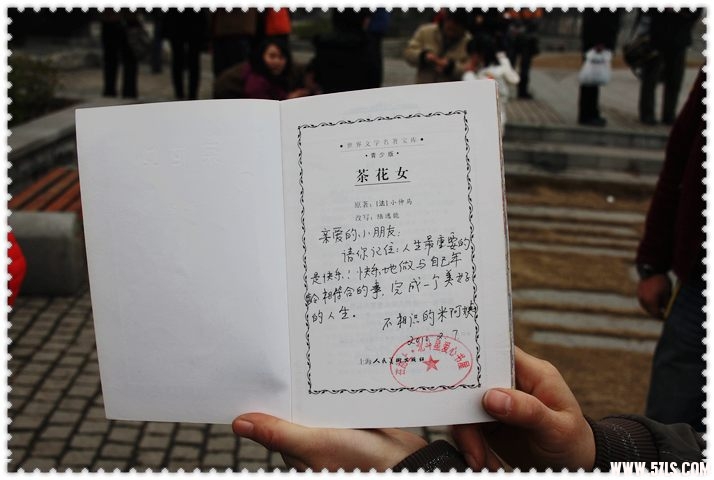 ·世界文学名著宝库·
·青少版·
茶花女
原著：[法]小仲马
改写：陆逸能
亲爱的小朋友：
请你记住：人生最重要的
是快乐！快乐地做与自己年
龄相符合的事，完成一个美好
的人生。
不相识的米阿姨
2010.2.7
上海人民美术出版社
爱心书屋
WWW.57LS.COM